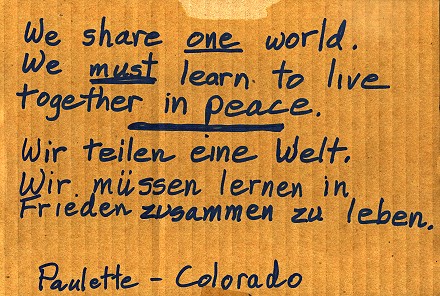 We share one world.
We must learn to live
together in peace.
Wir teilen eine Welt.
Wir müssen lernen in
Frieden zusammen zu leben.
Paulette - Colorado